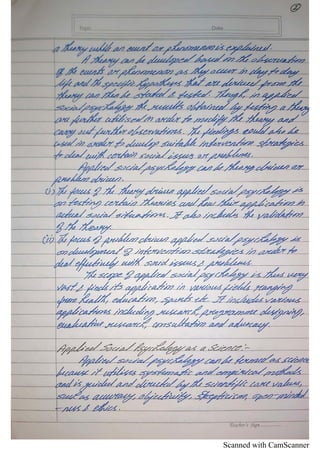 ②
Topic Date
a theory while an event or phenomenon is explained.
A theory can be developed based on the observation
of the events or phenomenon as they occur in day to day
life and the specific hypotheses that are derived from the
theory can then be stated & tested. Though in applied
social psychology the results obtained by testing a theory
are further utilised in order to modify the theory and
carry out further observations. The findings could also be
used in order to develop suitable intervention strategies
to deal with certain social issues or problems.
Applied social psychology can be theory driven or
problem driven.
(i) The focus of the theory driven applied social psychology is
on testing certain theories and how their application in
actual social situations. It also includes the validation
of the theory.
(ii) The focus of problem driven applied social psychology is
on development of intervention strategies in order to
deal effectively with social issues & problems.
The scope of applied social psychology is thus very
vast & finds its application in various fields ranging
from health, education, sports etc. It includes various
applications including research, programme designing,
evaluative research, consultation and advocacy.
Applied Social Psychology as a Science:-
Applied social psychology can be termed as science
because it utilises systematic and empirical methods
and is guided and directed by the scientific core values,
such as accuracy, objectivity, skepticism, open minded
-ness & ethics.
Teacher's Sign
Scanned with CamScanner